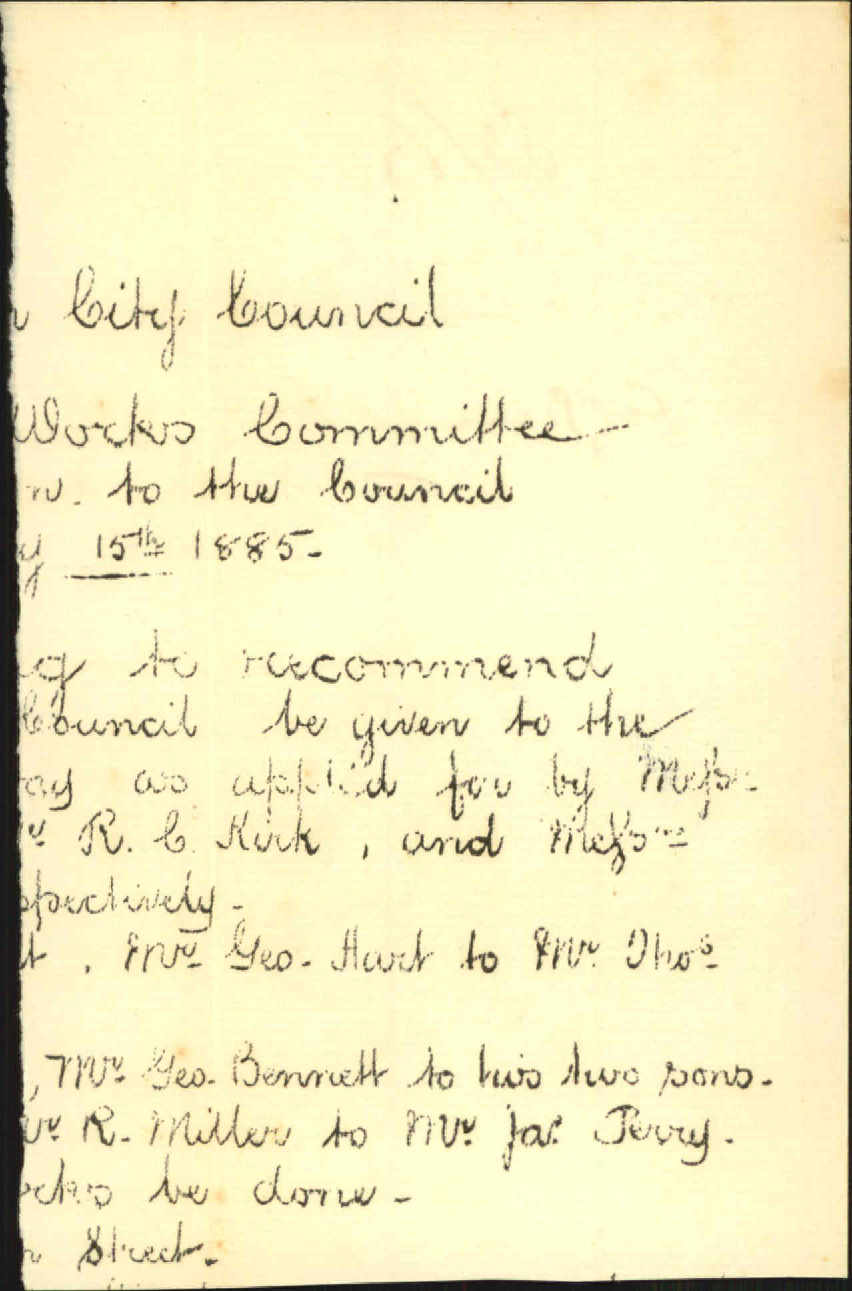 City Council
Works Committee
to the Council
15th 1885.
to recommend
Council be given to the
as applied for by Messrs
R. C. Kirk, and Messrs
spectively.
Mr Geo. Hart to Mr Thos
, Mr Geo. Bennett to his two sons.
R. Miller to Mr Jas Perry.
be done.
Street.